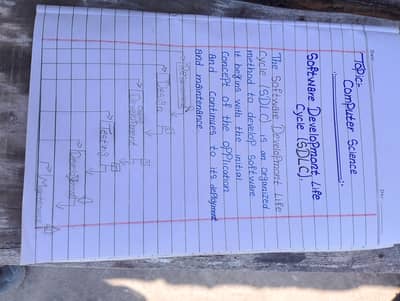 Topic:- Computer Science
Software Development Life
Cycle (SDLC).
The Software Development Life
Cycle (SDLC) is an organized
method to develop software.
it begins with the initial
Concept of the application
And Continues to its deployment
and maintenance.
Design
Development
Testing